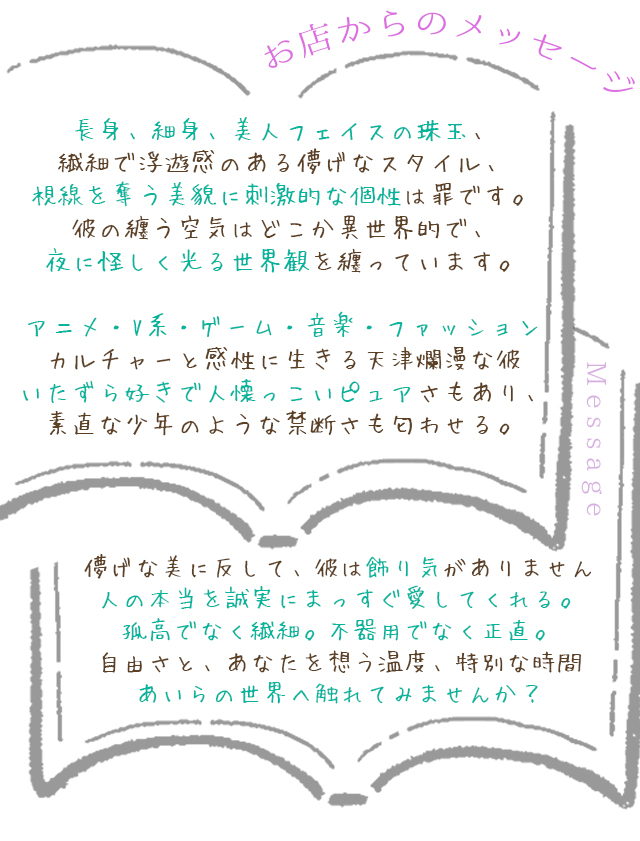 お店からのメッセージ
長身、細身、美人フェイスの珠玉、
繊細で浮遊感のある儚げなスタイル、
視線を奪う美貌に刺激的な個性は罪です。
彼の纏う空気はどこか異世界的で、
夜に怪しく光る世界観を纏っています。
アニメ・V系・ゲーム・音楽・ファッション
カルチャーと感性に生きる天津爛漫な彼
いたずら好きで人懐っこいピュアさもあり、
素直な少年のような禁断さも匂わせる。
Message
儚げな美に反して、彼は飾り気がありません
人の本当を誠実にまっすぐ愛してくれる。
孤高でなく繊細。不器用でなく正直。
自由さと、あなたを想う温度、特別な時間
あいらの世界へ触れてみませんか？